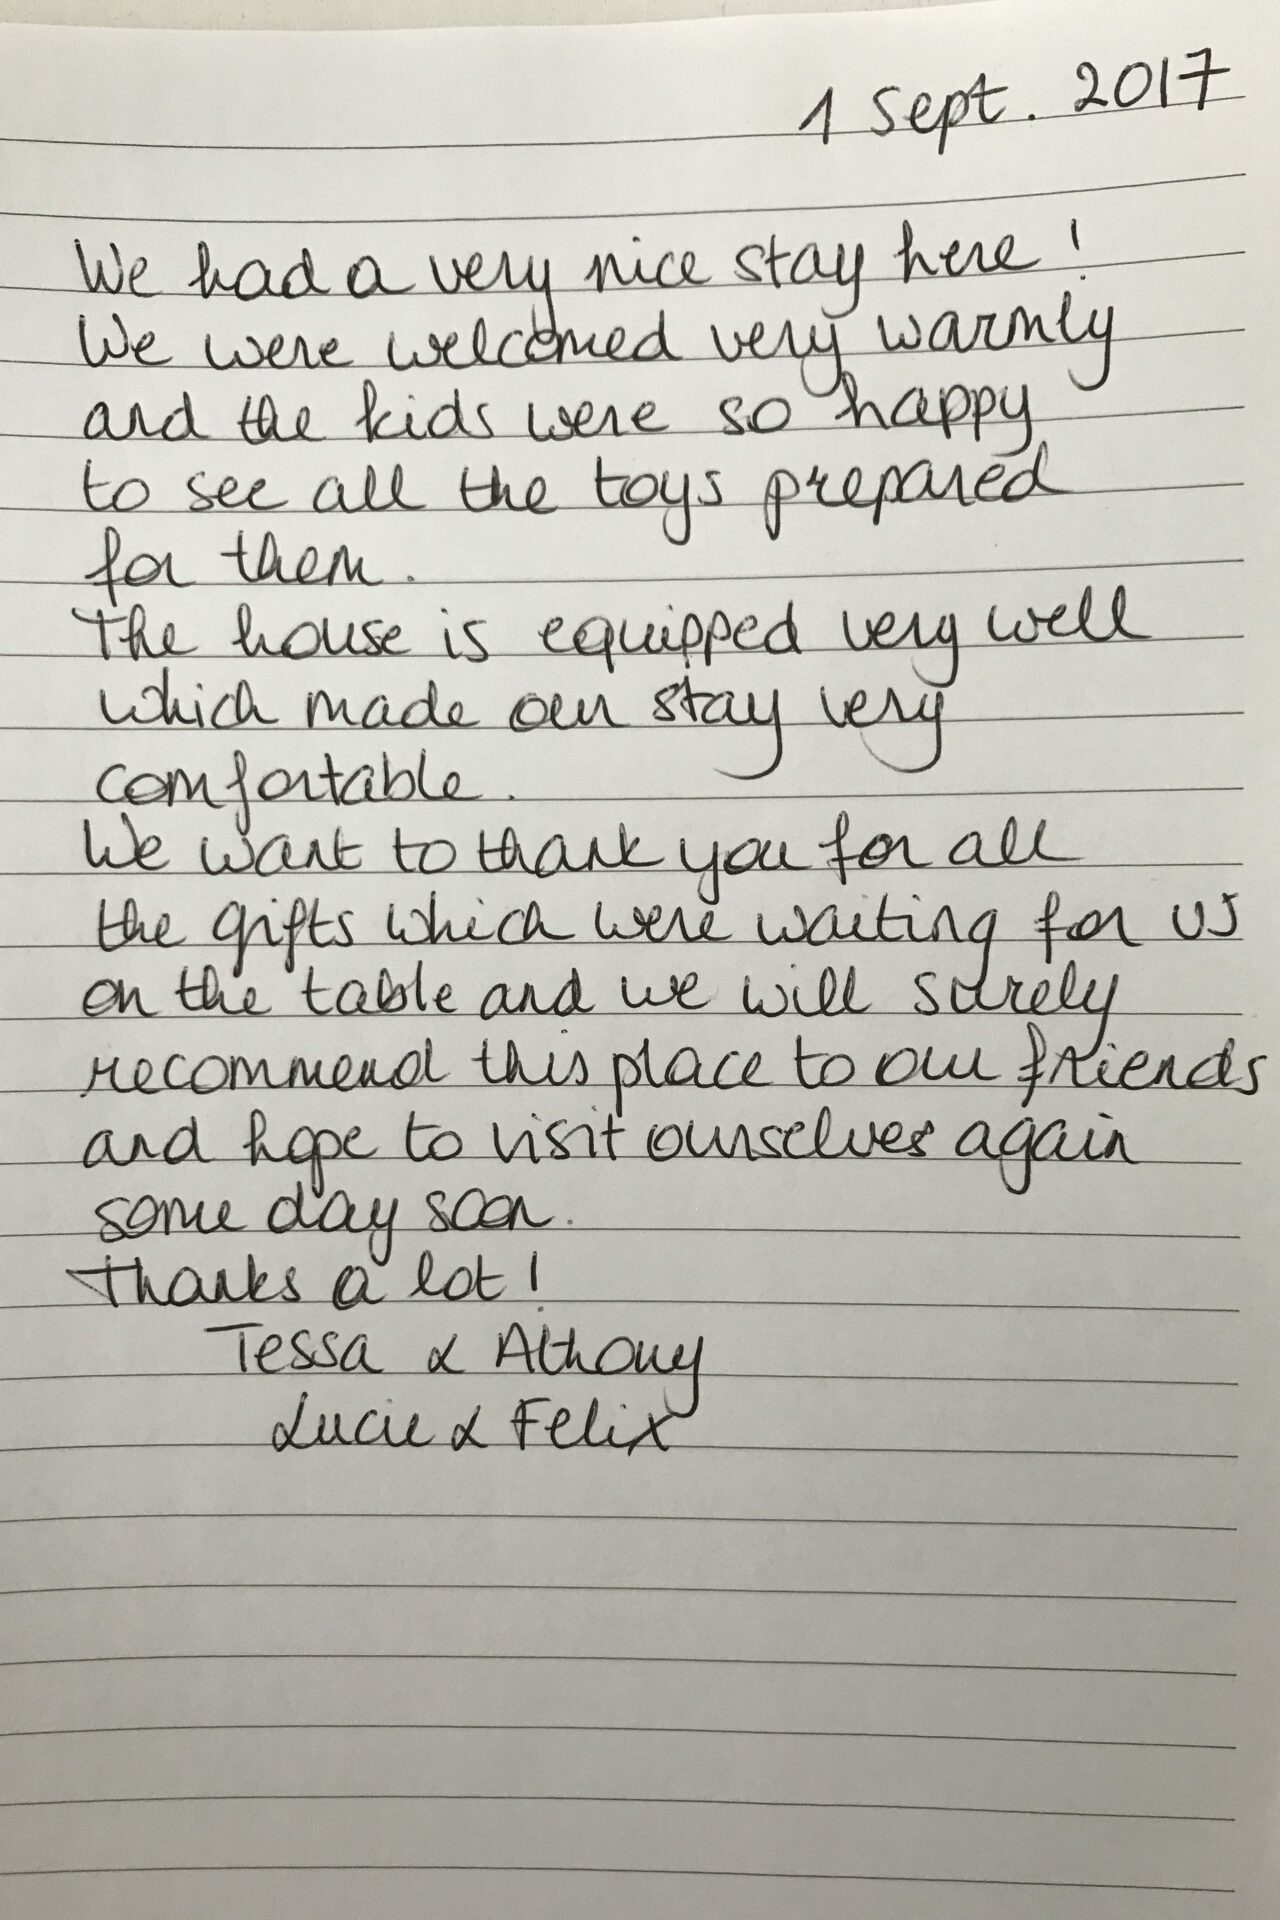 1 Sept. 2017
We had a very nice stay here!
We were welcomed very warmly
and the kids were so happy
to see all the toys prepared
for them.
The house is equipped very well
which made our stay very
comfortable.
We want to thank you for all
the gifts which were waiting for us
on the table and we will surely
recommend this place to our friends
and hope to visit ourselves again
some day soon.
Thanks a lot!
Tessa & Athony
Lucie & Felix